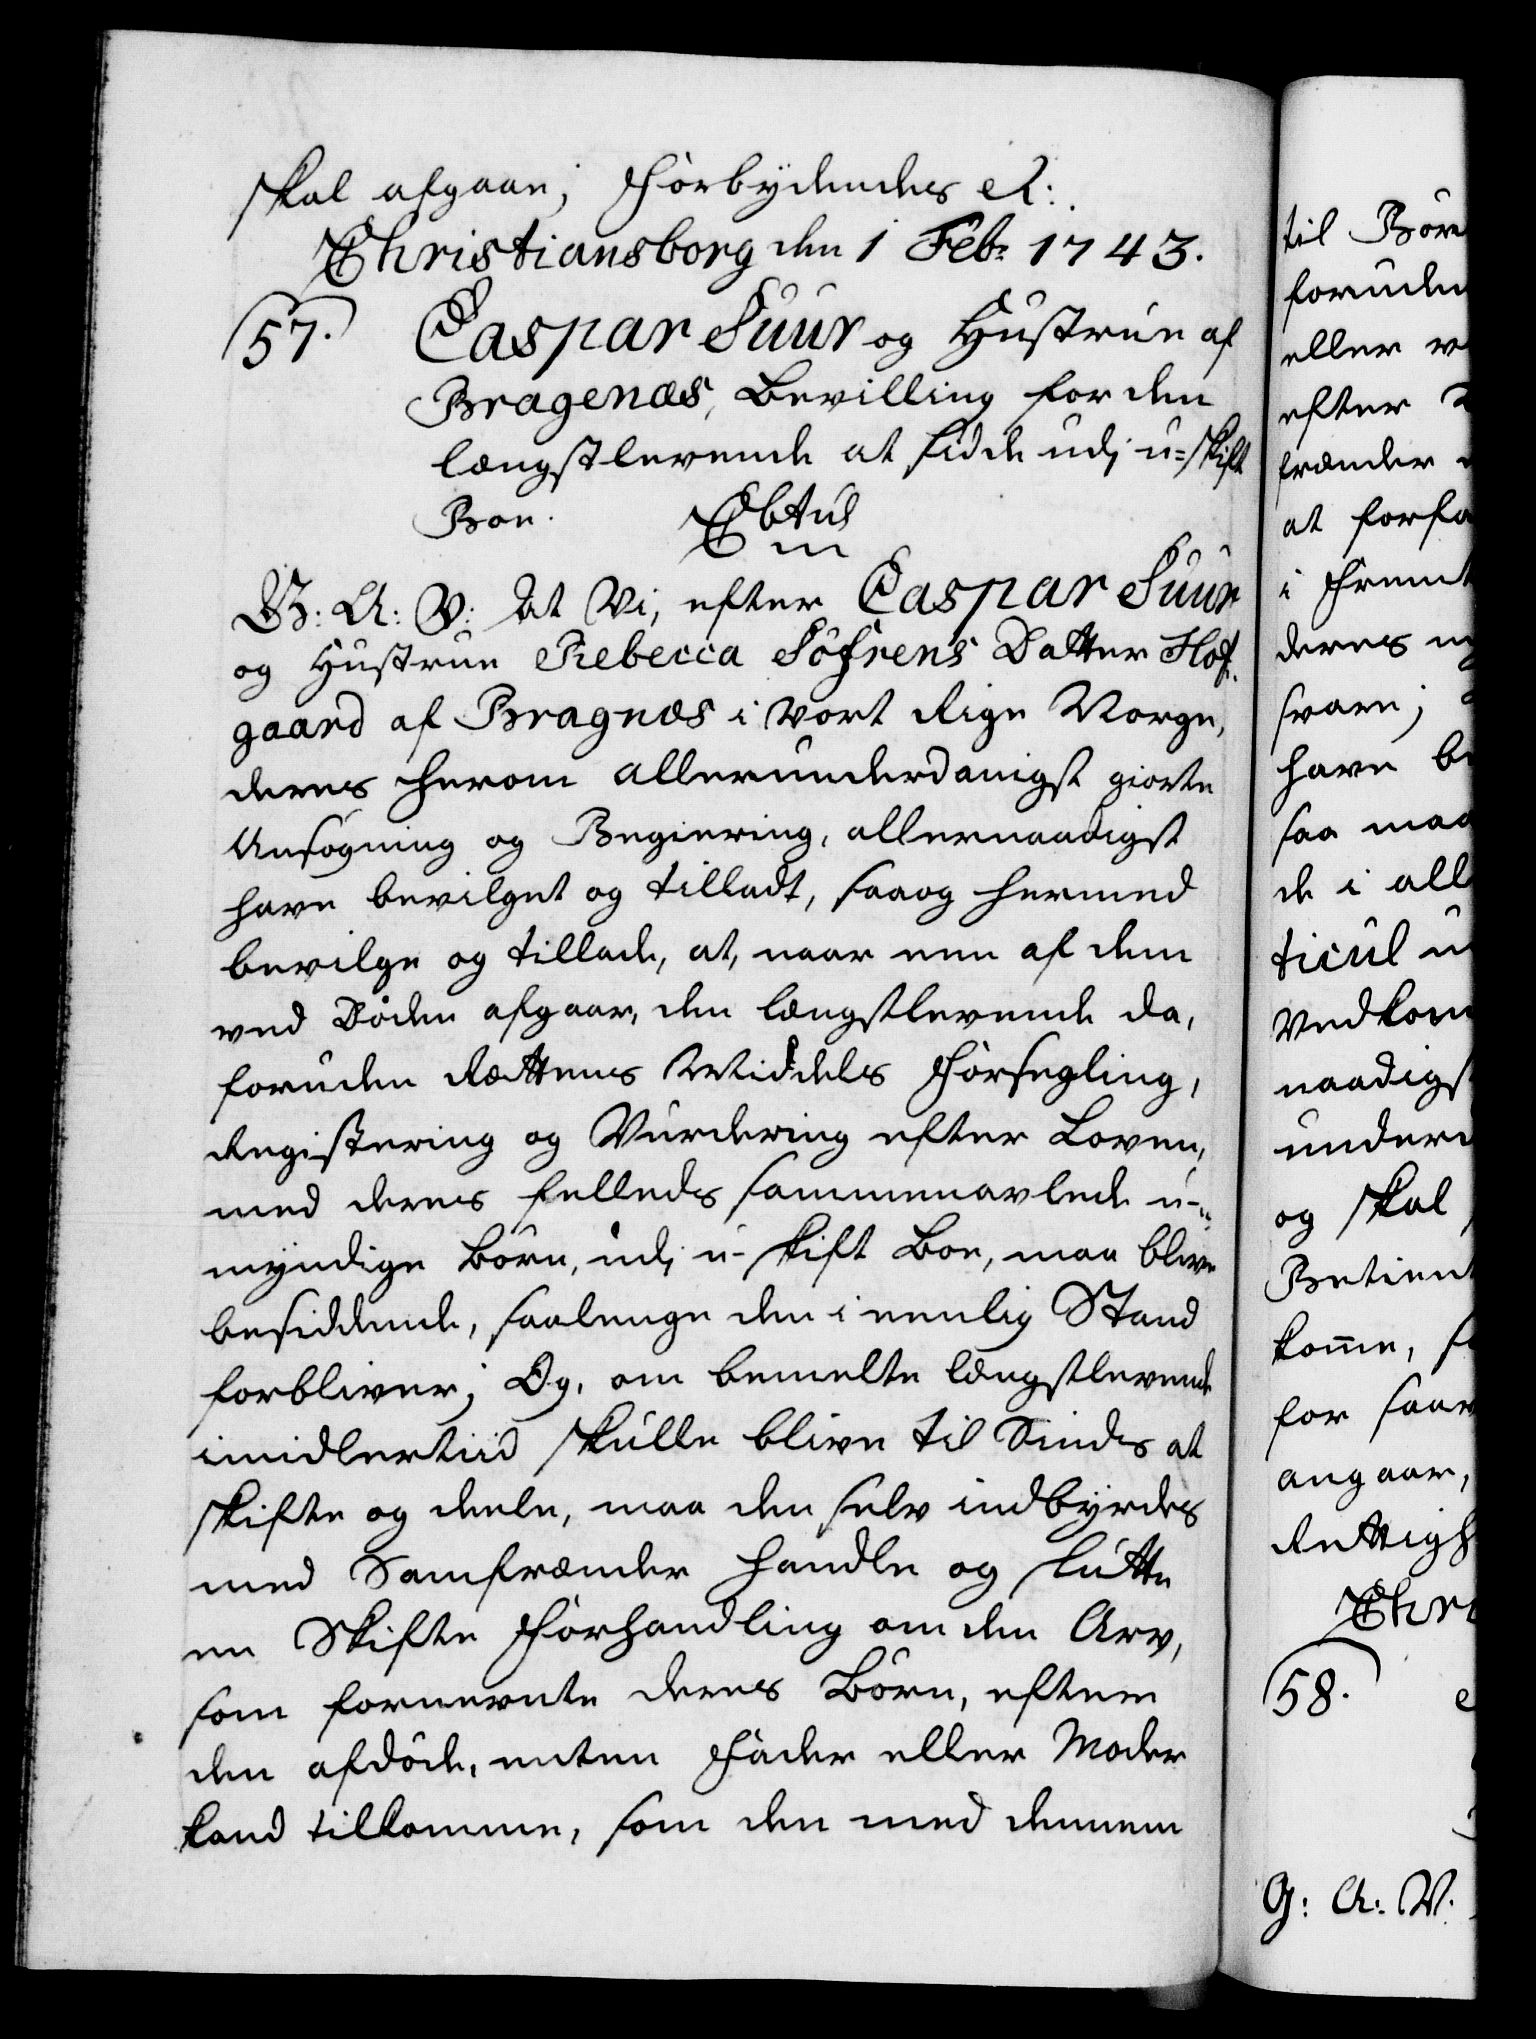 skal afgaae; Forbydendes &:
Christiansborg den 1 Feb: 1743.
57. Caspar Suur og Hustrue af
Bragenæs, Bevilling for den
længstlevende at sidde udj u-skift
Boe.
G: A: V: At Vi, efter Caspar Suur
og Hustrue Rebecca Söfrens Datter Hof-
gaard af Bragnæs i Vort Rige Norge,
deres herom allerunderdanigst giorte
Ansögning og Begiering, allernaadigst
have bevilget og tilladt, saaog hermed
bevilge og tillade, at, naar een af dem
ved Döden afgaar, den længstlevende da,
foruden Rettens Middels Forsegling,
Registering og Vurdering efter Loven,
med deres felleds sammenavlede u-
myndige Börn, udj u-skift Boe, maa blive
besiddende, saalenge den i eenlig Stand
forbliver; Og, om bemelte længstlevende
imidlertiid skulle blive til Sinds at
skifte og deele, maa den selv indbyrdes
med Samfrænder handle og slutte
en Skifte Forhandling om den Arv,
som fornevnte deres Börn, efter
den afdöde, enten Fader eller Moder
kand tilkomme, som den med dennem
til Börn
foruden
eller
efter
frænder
at forfa
i Fremt
deres
svare;
have
saa maa
de i all
ticul
Vedkom
naadigst
under
og skal
Betient
komme,
for saa
angaar,
Rettigh
Chri
58.
G: A: V: